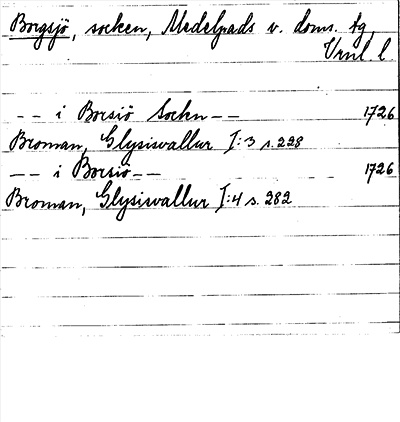 Borgsjö, socken, Medelpads v. doms. tg,
Vnl. l.
-- i Borsiö Sockn -- 1726
Broman, Glysisvallur I:3 s. 228
-- i Borsiö -- 1726
Broman, Glysisvallur I:4 s. 282